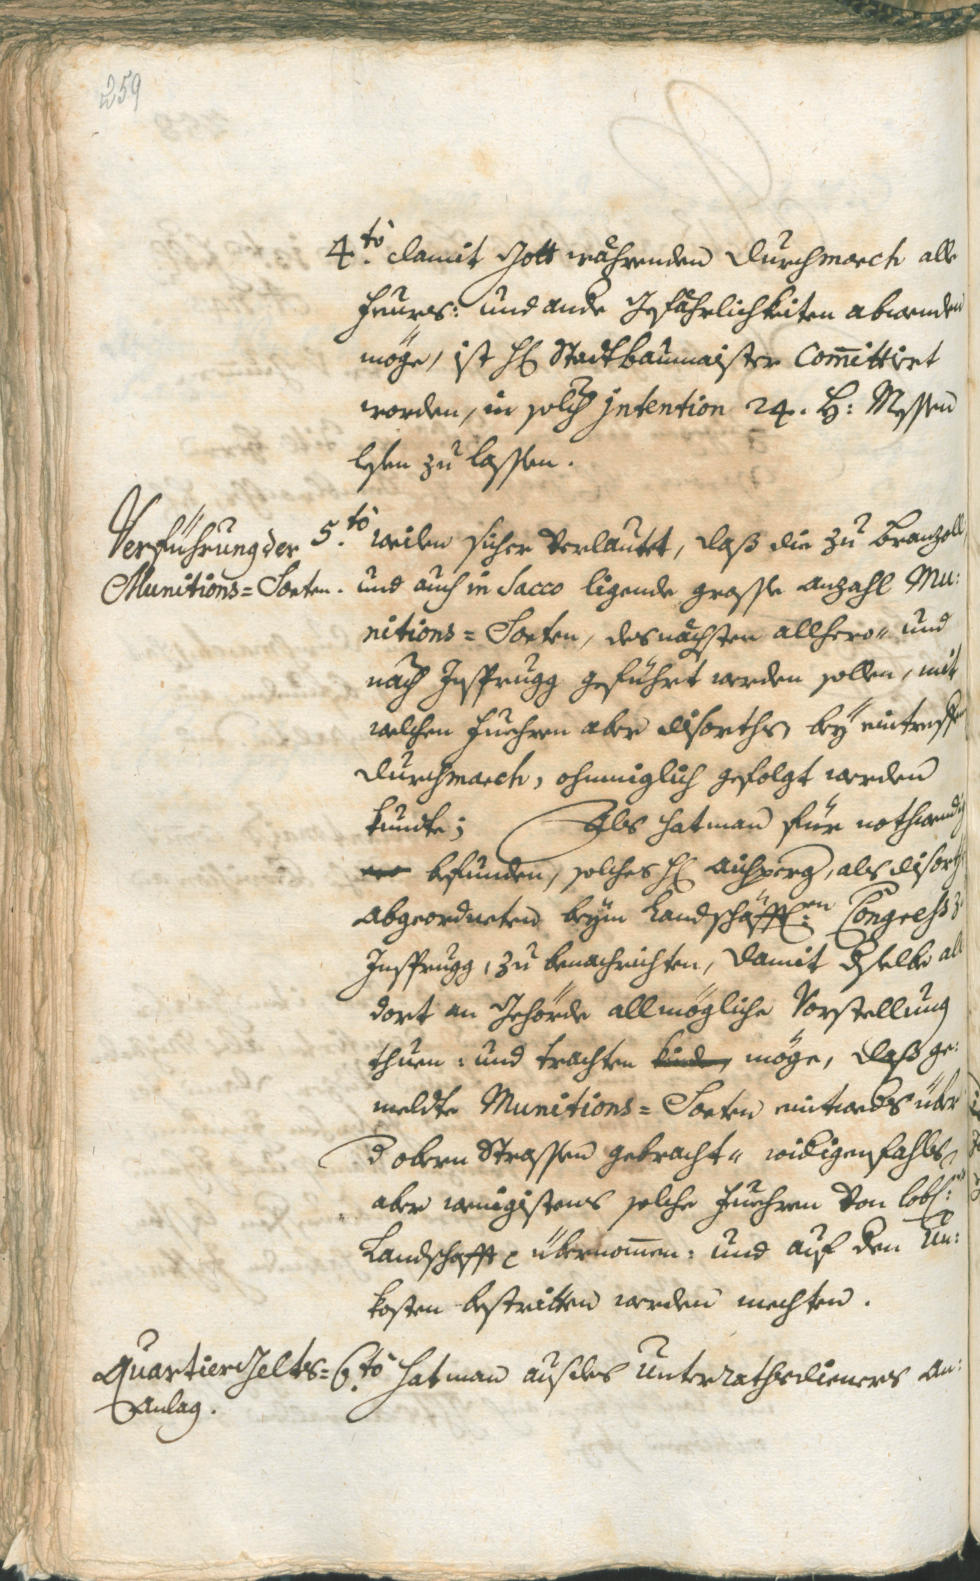 259
4.to damit Gott währenden durchmarch alle
feurs: und ande gefährlichkeiten abwenden
möge, ist H. Stadtbaumaister Committirt
worden, in solch jntention 24. H: Messen
lesen zu lassen.
Verführung der
Munitions=Sorten.
5.to weilen sicher verlautet, daß die zu Branzoll,
und auch in Sacco ligende grosse anzahl Mu:
nitions=Sorten, des nächsten allhero- und
nach Insprugg geführt werden sollen, mit
welchen fuehren aber diserths bey eintreffen
durchmarch, ohnmiglich gefolgt werden
kundte; Als hat man für nothwendig
befunden, solches H. Aichperg, als diserths
abgeordneten beym Landschäffl:en Congress z
Insprugg, zu benachrichten, damit dselbe all
dort an Gehörde all mögliche Vorstellung
thuen: und trachten möge, daß ge:
meldte Munitions=Sorten eintweds über
d obern Strassen gebracht- widigenfahls
aber wenigistens solche fuehren von lobl:
Landschafft übernommen: und auf den Un:
kosten bestritten werden mechten.
Quartier Gelts=
Anlag.
6.to hat man aus des Unterrathsdieners An: